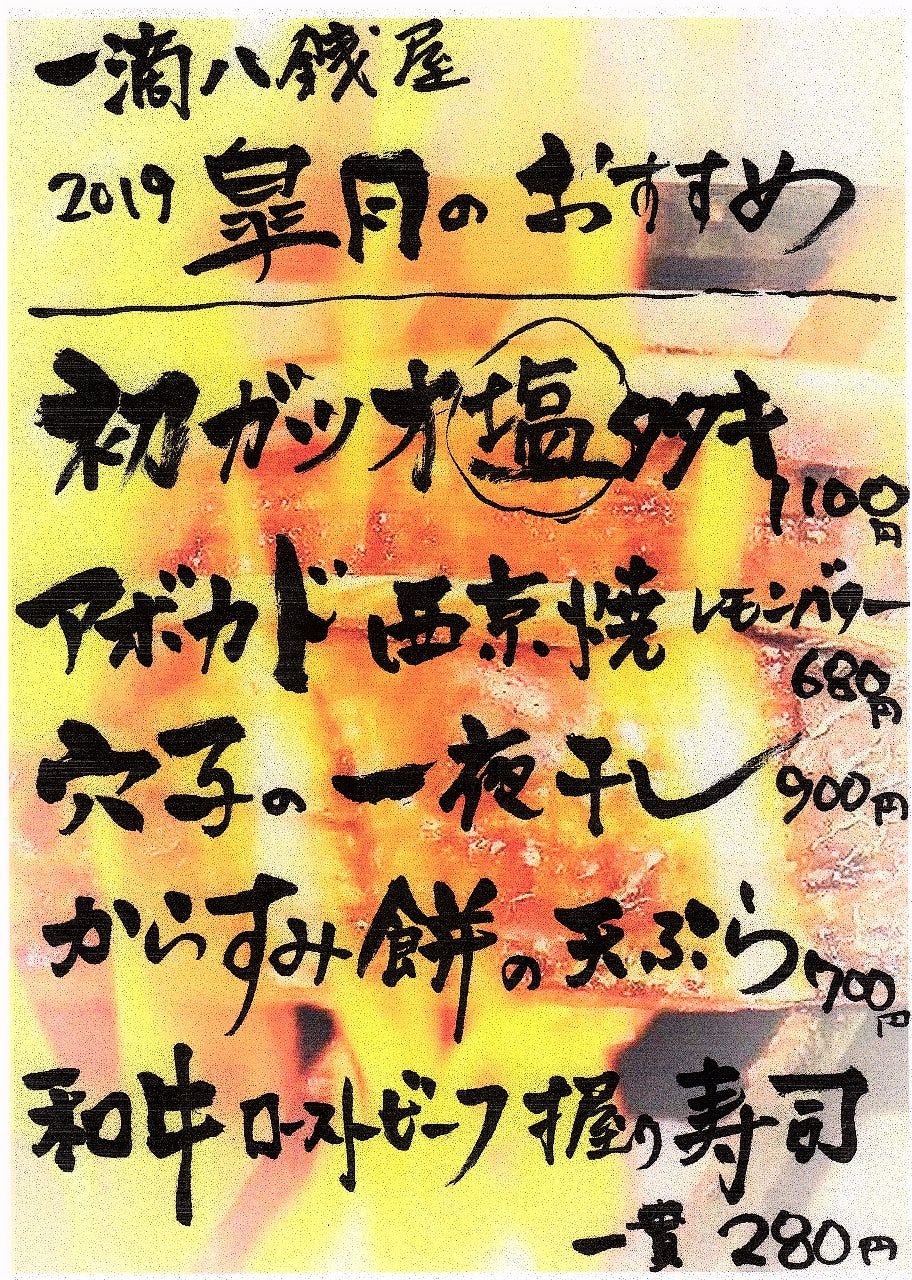 一滴八銭屋
2019 皐月のおすすめ
初ガツオ塩タタキ
1100円
アボカド西京焼 レモンバター
680円
穴子の一夜干し 900円
からすみ餅の天ぷら 700円
和牛ローストビーフ握り寿司
一貫 280円